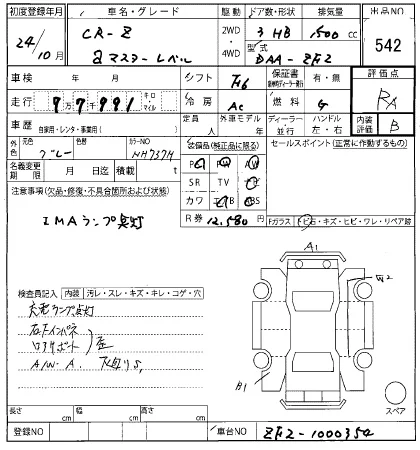 初度登録年月 車名・グレード 駆動 ドア数・形状 排気量 出品NO
24年 10月 CR-Z 2WD・4WD 3 HB 1500cc 542
αマスターレーベル 型式 DAA-ZF2
車検 年 月 シフト F6 保証書 有・無 評価点
走行 97,991 キロ・マイル 冷房 AC 燃料 G RA
車歴 自家用・レンタ・事業用( ) 定員 人 外車モデル 年 ディーラー・並行 ハンドル 左・右 内装評価 B
外色 元色 グレー 色替 カラーNO NH737M 装備品(純正品に限る) セールスポイント(正常に作動するもの)
名義変更期限 月 日迄 積載 t
PS PW
SR TV
カワ ABS
注意事項(欠品・修復・不具合箇所および状態)
R券 12,580円 Fガラス トビ石・キズ・ヒビ・ワレ・リペア跡
IMAランプ点灯
A1
検査員記入 内装 汚レ・スレ・キズ・キレ・コゲ・穴
充電ランプ点灯
A/W・A. 下廻りS,
A1
スペア
長さ cm 幅 cm 高さ cm
登録NO 車台NO ZF2-1000354